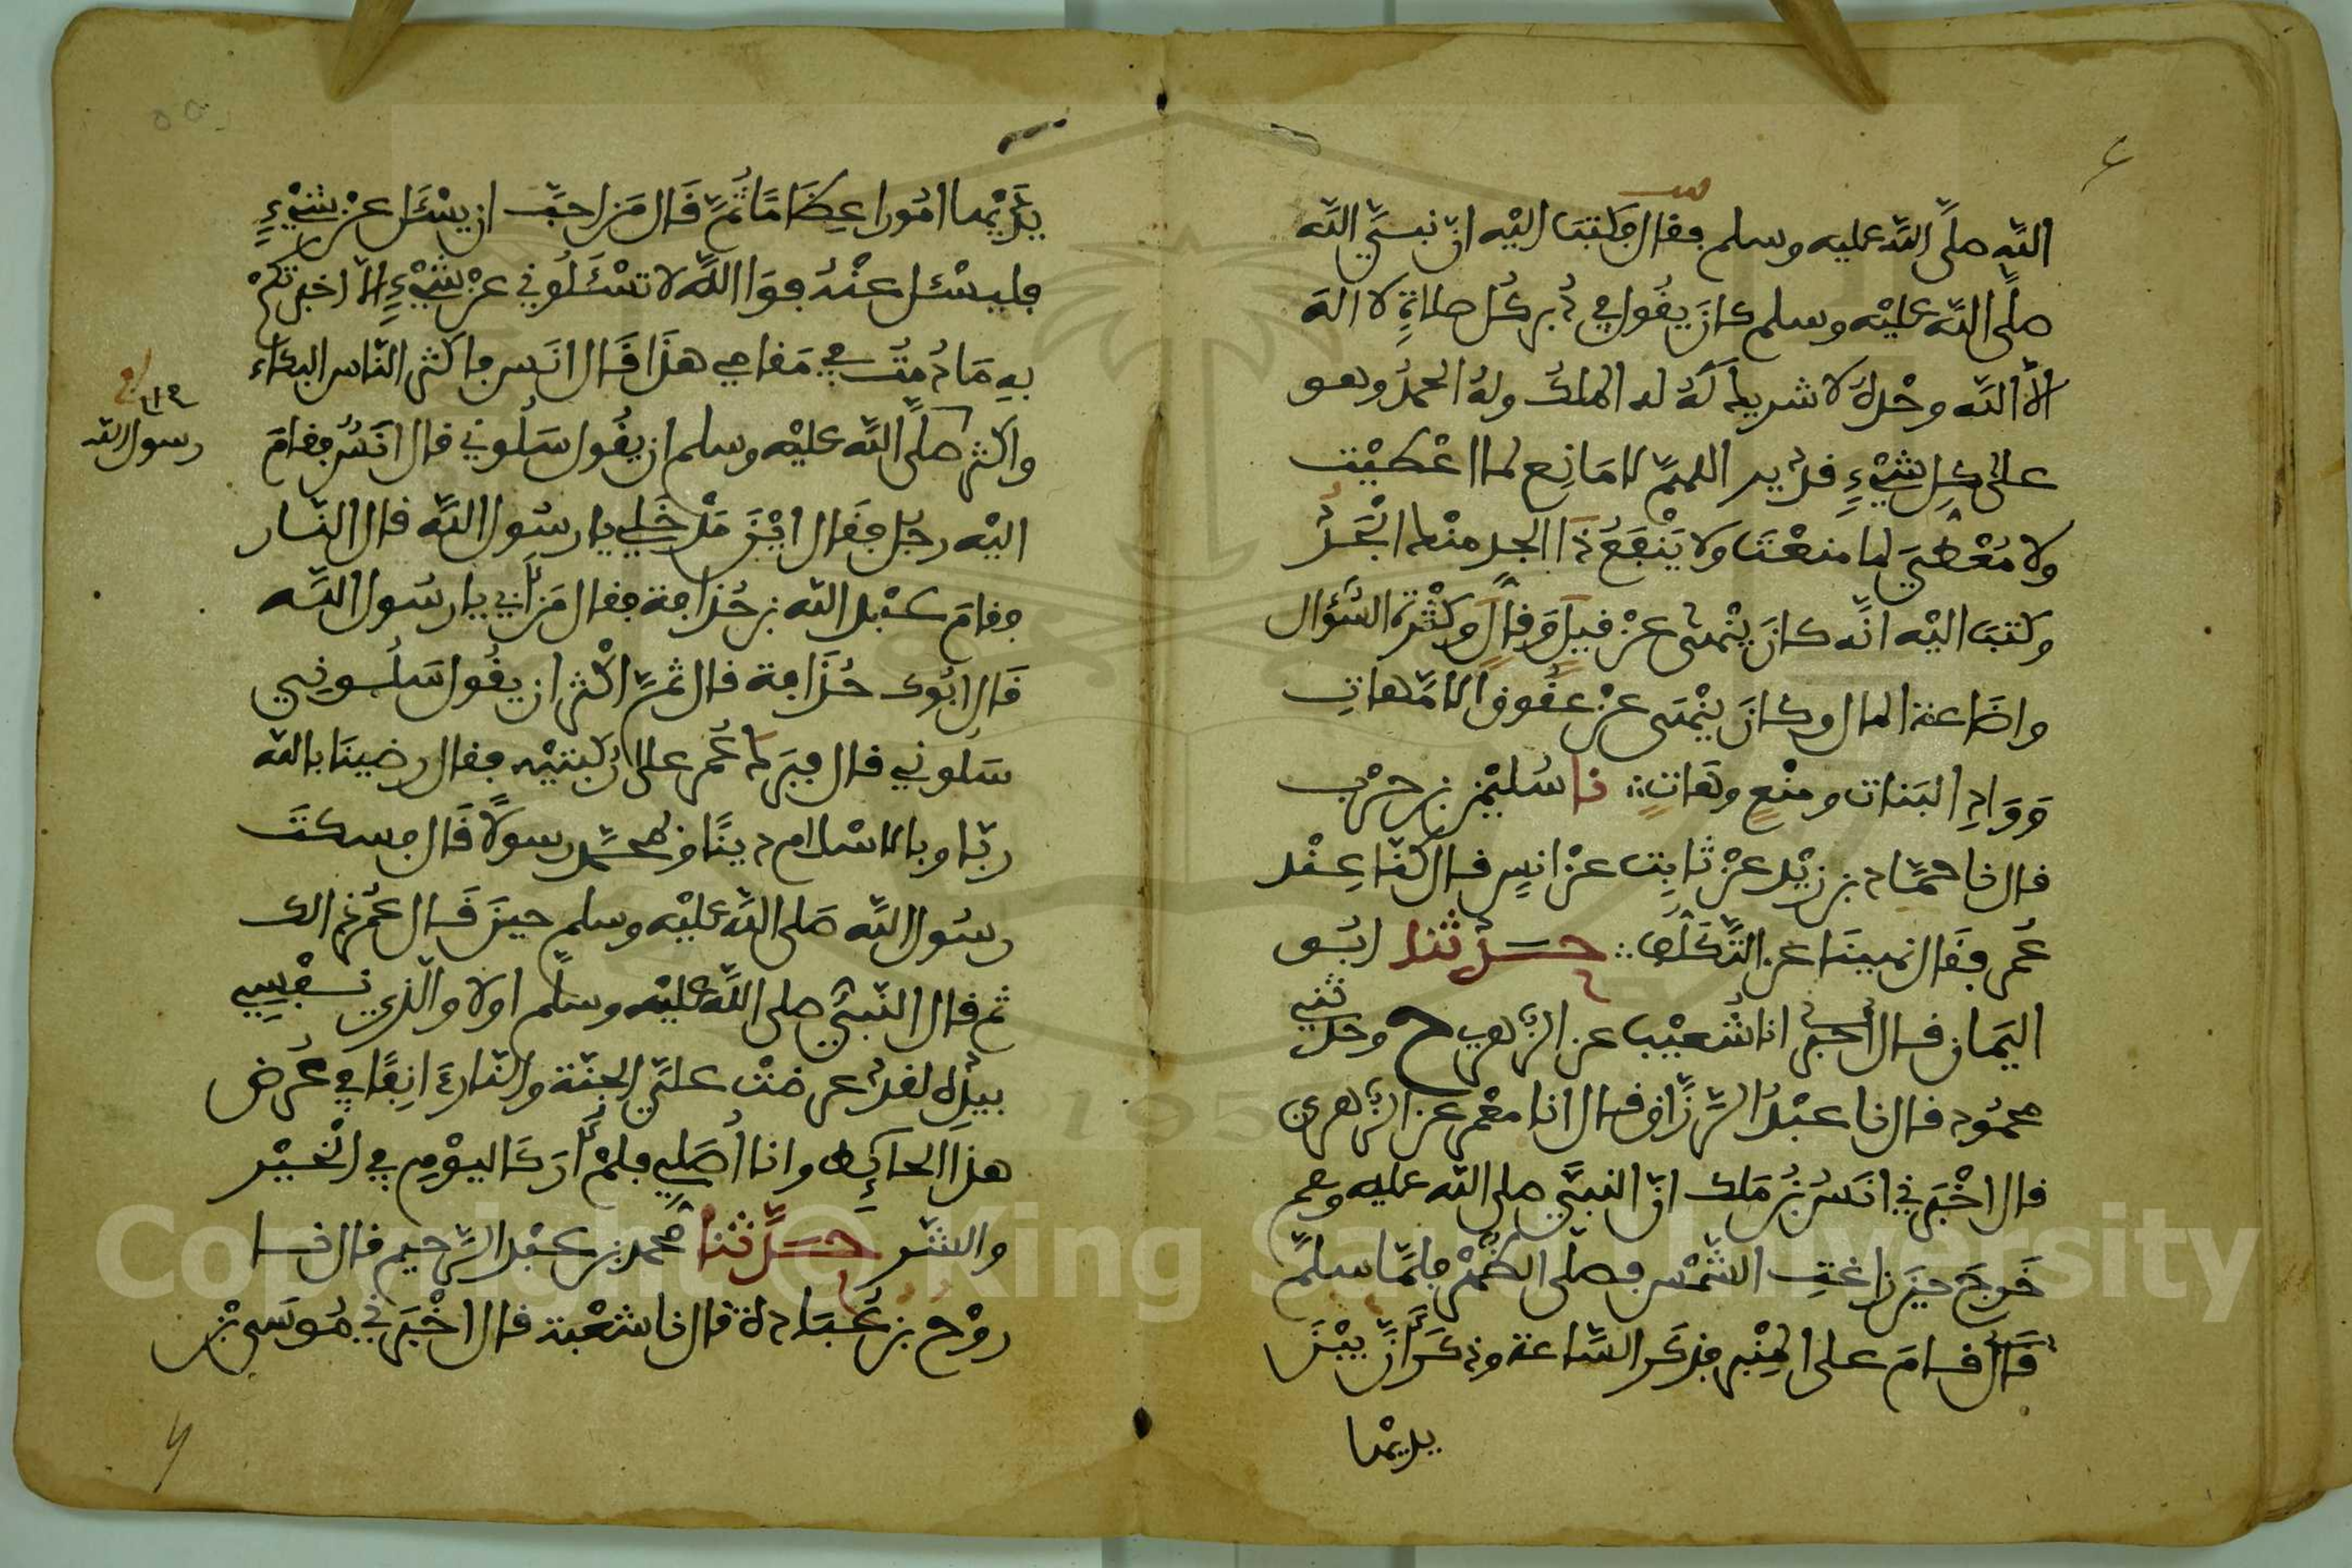 الله صلى الله عليه وسلم فقال فكتب اليه ان نبي الله
صلى الله عليه وسلم كان يقول في دبر كل صلاة لا اله
الا الله وحده لا شريك له له الملك وله الحمد وهو
على كل شيء قدير اللهم لا مانع لما اعطيت
ولا معطي لما منعت ولا ينفع ذا الجد منك الجد
وكتب اليه انه كان ينهى عن قيل وقال وكثرة السؤال
واضاعة المال وكان ينهى عن عقوق الامهات
ووأد البنات ومنع وهات نا سليمن بن حرب
قال نا حماد بن زيد عن ثابت عن انس قال كنا عند
عمر فقال نهينا عن التكلف حدثنا ابو
اليمان قال انا شعيب عن الزهري ح وحدثني
محمود قال نا عبد الرزاق قال انا معمر عن الزهري
قال اخبرني انس بن ملك ان النبي صلى الله عليه وسلم
خرج حين زاغت الشمس فصلى الظهر فلما سلم
قام على المنبر فذكر الساعة وذكر ان بين
يديها
يديها امورا عظاما ثم قال من احب ان يسئل عن شيء
فليسئل عنه فوالله لا تسئلوني عن شيء الا اخبرتكم
به ما دمت في مقامي هذا قال انس فاكثر الناس البكاء
واكثر صلى الله عليه وسلم ان يقول سلوني قال انس فقام
رسول الله
اليه رجل فقال اين مدخلي يا رسول الله قال النار
فقام عبد الله بن حذافة فقال من ابي يا رسول الله
قال ابوك حذافة قال ثم اكثر ان يقول سلوني
سلوني قال فبرك عمر على ركبتيه فقال رضينا بالله
ربا وبالاسلام دينا وبمحمد رسولا قال فسكت
رسول الله صلى الله عليه وسلم حين قال عمر ذلك
ثم قال النبي صلى الله عليه وسلم اولا والذي نفسي
بيده لقد عرضت علي الجنة والنار ءانفا في عرض
هذا الحائط وانا اصلي فلم ار كاليوم في الخير
والشر حدثنا محمد بن عبد الرحيم قال نا
روح بن عبادة قال نا شعبة قال اخبرني موسى بن
Copyright © King Saud University